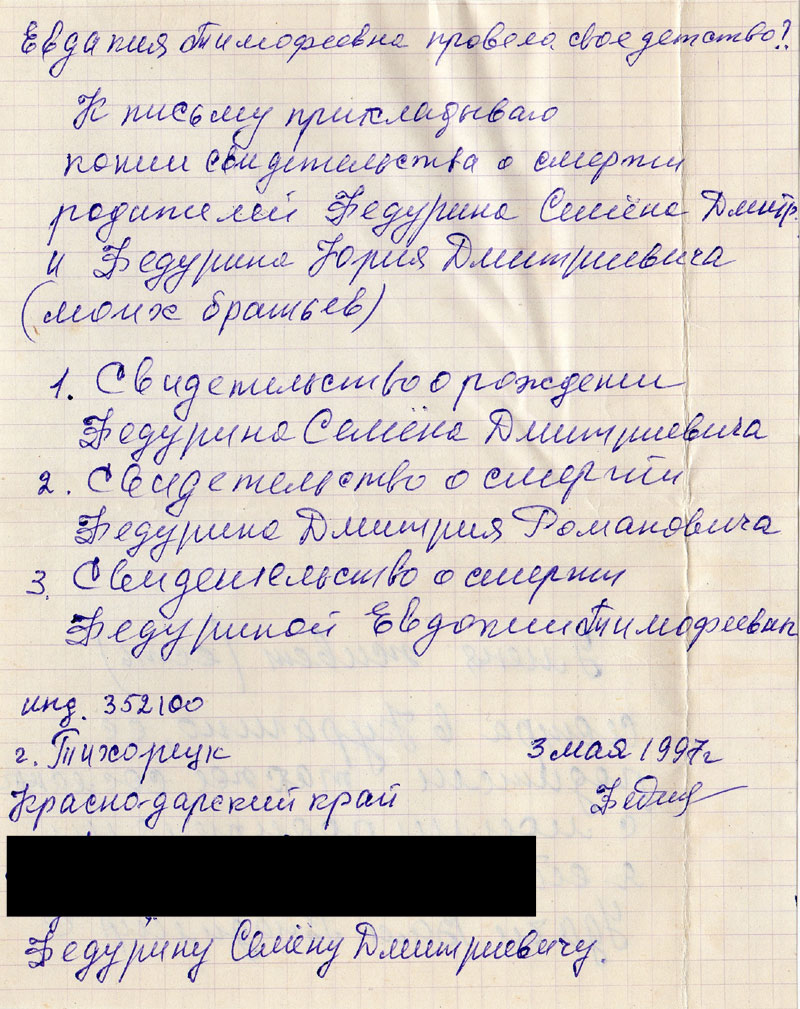 Евдакия Тимофеевна провела свое детство?
К письму прикладываю
копии свидетельства о смерти
родителей Федурина Семёна Дмитр.
и Федурина Юрия Дмитриевича
(моих братьев)
1. Свидетельство о рождении
Федурина Семёна Дмитриевича
2. Свидетельство о смерти
Федурина Дмитрия Романовича
3. Свидетельство о смерти
Федуриной Евдокии Тимофеевн
инд. 352100
г. Тихорецк 3 мая 1997г
Красно-дарский край
Федурину Семёну Дмитриевичу.